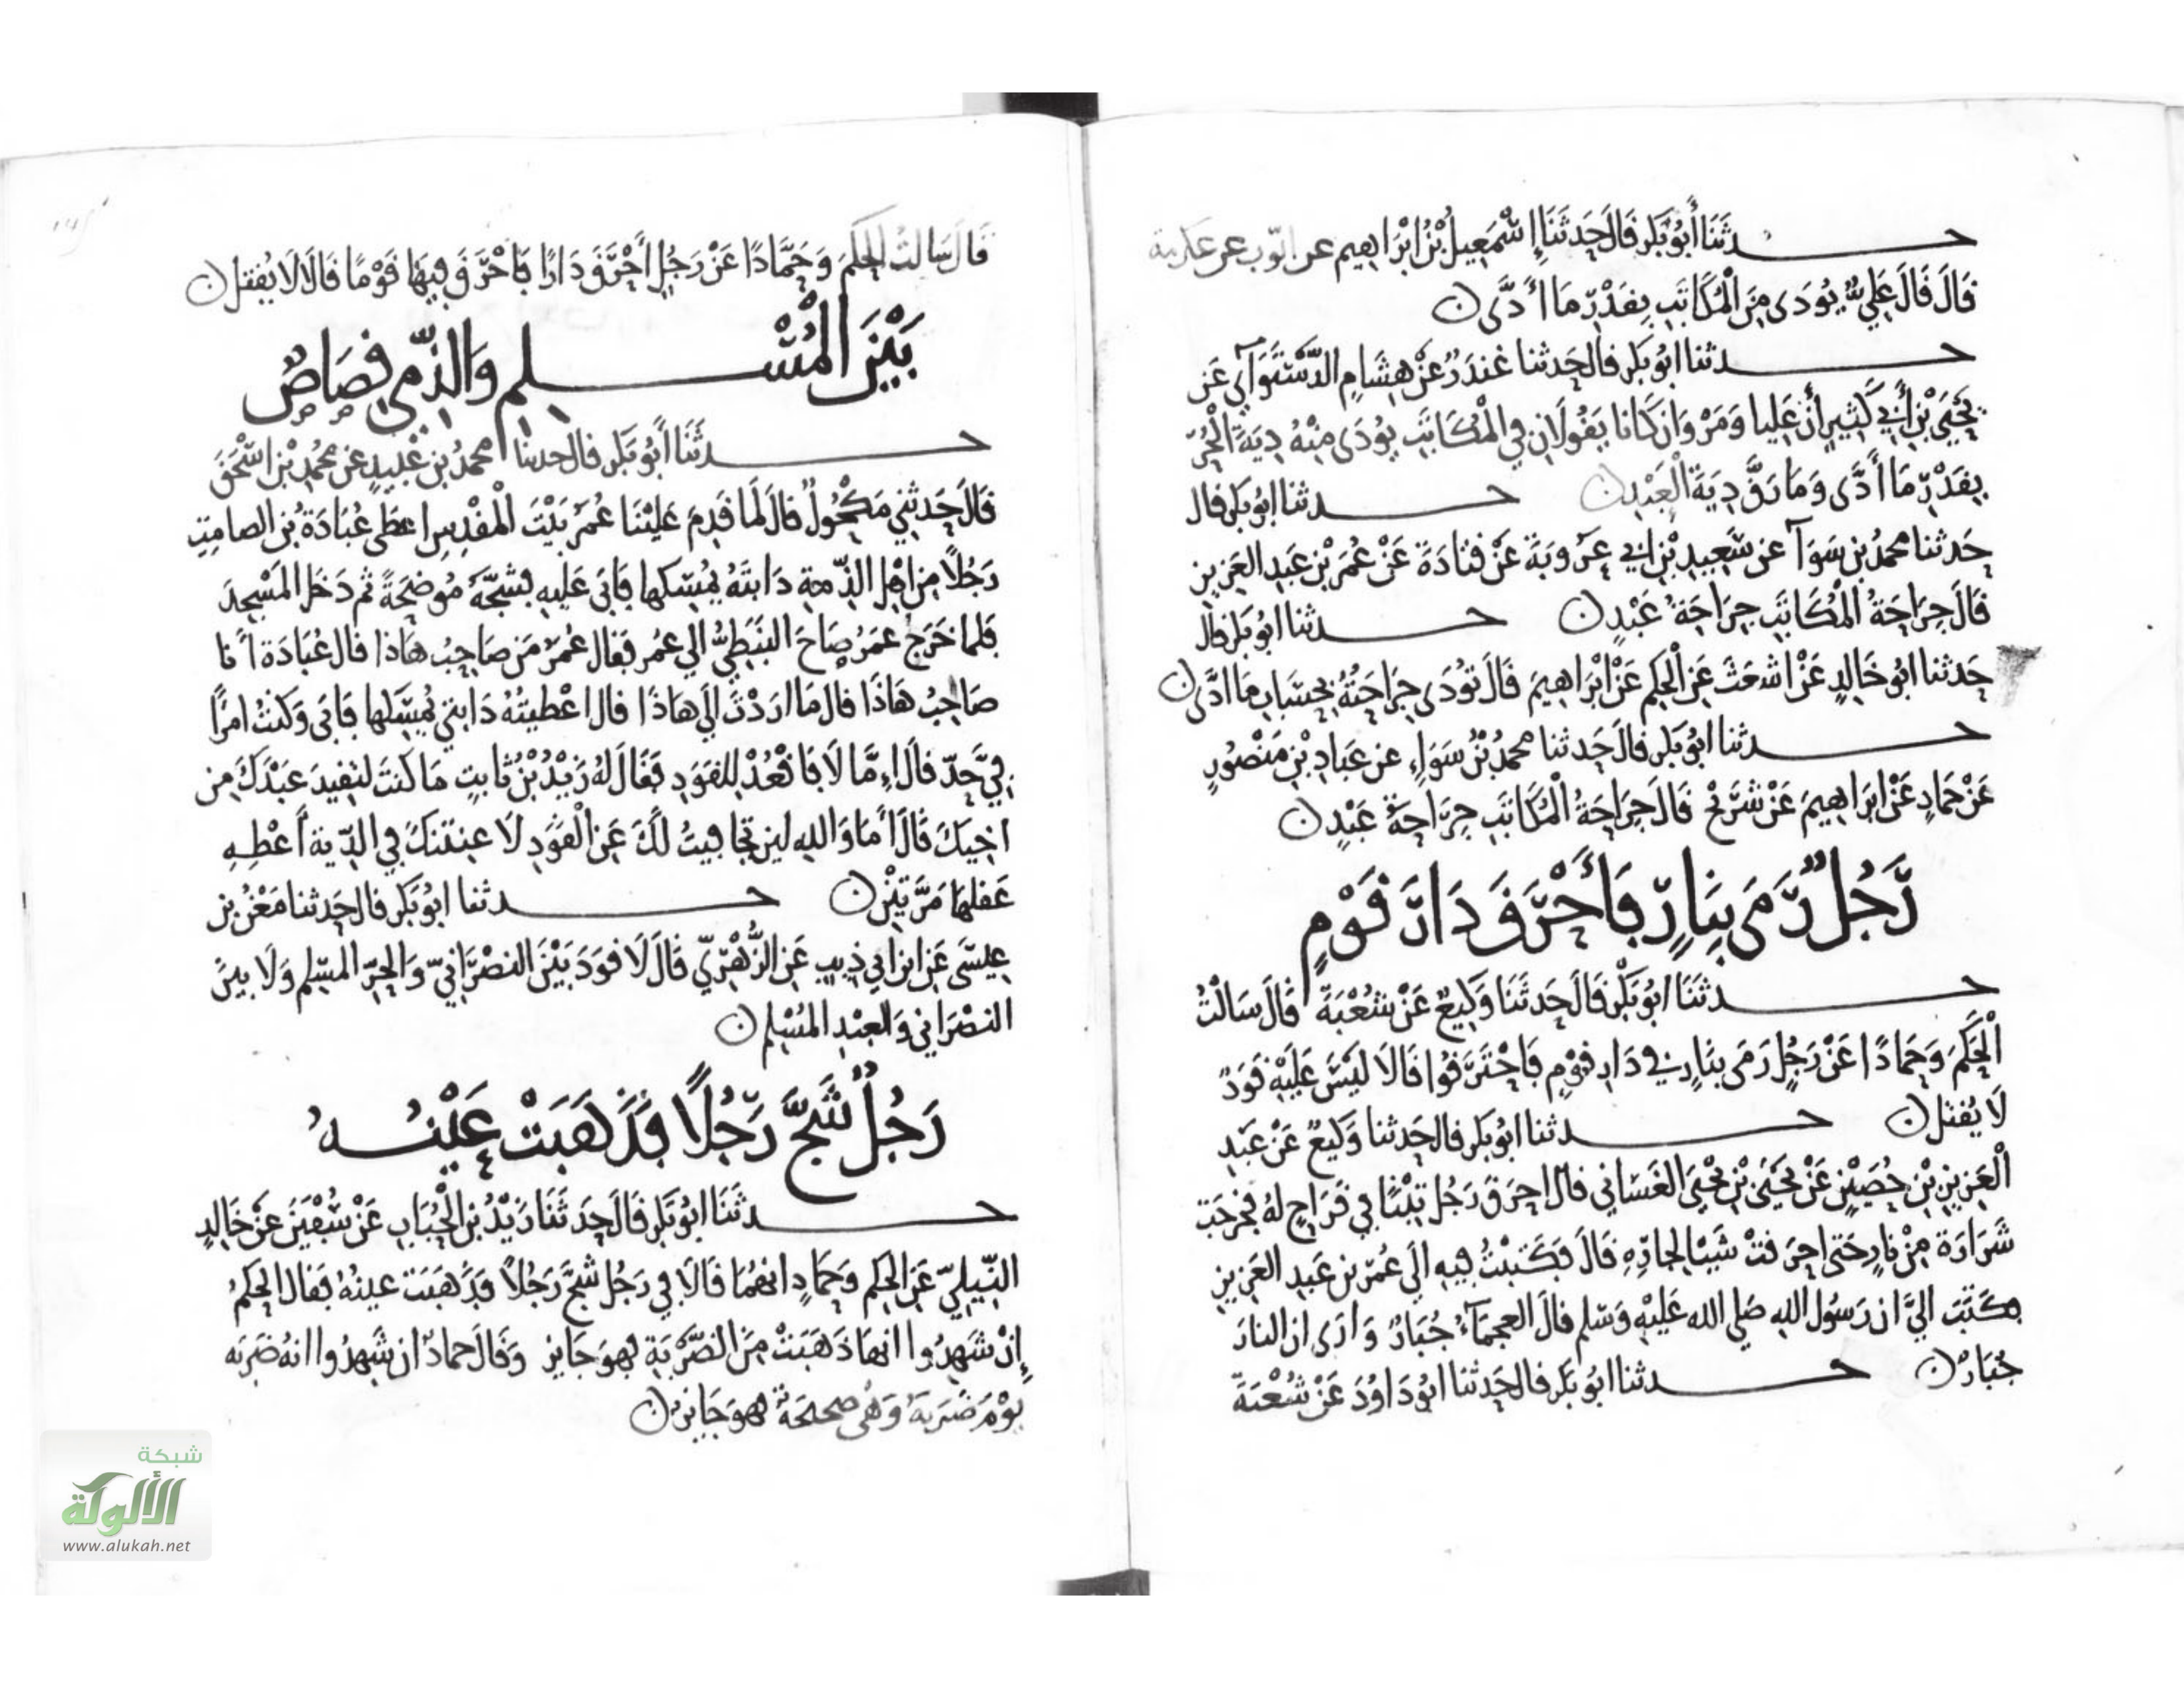 حدثنا أبو بكر قال حدثنا إسمعيل بن ابراهيم عن ايوب عن عكرمة
قال قال علي يودى من المكاتب بقدر ما أدى
حدثنا ابو بكر قال حدثنا غندر عن هشام الدستوآي عن
يحيى بن أبي كثير أن عليا ومروان كانا يقولان في المكاتب يودى منه دية الحر
بقدر ما أدى وما رق دية العبد حدثنا ابو بكر قال
حدثنا محمد بن سوآ عن سعيد بن ابي عروبة عن قتادة عن عمر بن عبد العزيز
قال جراحة المكاتب جراحة عبد حدثنا ابو بكر قال
حدثنا ابو خالد عن اشعث عن الحكم عن ابراهيم قال تودى جراحته بحساب ما ادى
حدثنا ابو بكر قال حدثنا محمد بن سواء عن عباد بن منصور
عن حماد عن ابراهيم عن شريح قال جراحة المكاتب جراحة عبد
رجل رمى بنار فأحرق دار قوم
حدثنا ابو بكر قال حدثنا وكيع عن شعبة قال سالت
الحكم وحمادا عن رجل رمى بنار في دار قوم فاحترقوا قالا ليس عليه قود
لا يقتل حدثنا ابو بكر قال حدثنا وكيع عن عبد
العزيز بن حصين عن يحيى بن يحيى الغساني قال احرق رجل تبنا في قراح له فخرجت
شرارة من نار حتى احرقت شيا لجاره قال فكتبت فيه الى عمر بن عبد العزيز
فكتب الي ان رسول الله صلى الله عليه وسلم قال العجمآء جبار وارى ان النار
جبار حدثنا ابو بكر قال حدثنا ابو داود عن شعبة
قال سالت الحكم وحمادا عن رجل أحرق دارا فأحرق فيها قوما قالا لا يقتل
بين المسلم والذمي قصاص
حدثنا أبو بكر قال حدثنا محمد بن عبيد عن محمد بن اسحق
قال حدثني مكحول قال لما قدم علينا عمر بيت المقدس اعطى عبادة بن الصامت
رجلا من اهل الذمة دابته يمسكها فابى عليه فشجه موضحة ثم دخل المسجد
فلما خرج عمر صاح النبطي الي عمر فقال عمر من صاحب هاذا قال عبادة أنا
صاحب هاذا قال ما اردت الى هاذا قال اعطيته دابتي يمسكها فابى وكنت امرا
في حد قال إما لا فاقعد للقود فقال له زيد بن ثابت ما كنت لتقيد عبدك من
اخيك قال أما والله لين تجافيت لك عن القود لا عنتنك في الدية أعطه
عقلها مرتين حدثنا ابو بكر قال حدثنا معن بن
عيسى عن ابن ابي ذيب عن الزهري قال لا قود بين النصراني والحر المسلم ولا بين
النصراني والعبد المسلم
رجل شج رجلا فذهبت عينه
حدثنا ابو بكر قال حدثنا زيد بن الحباب عن سفين عن خالد
النيلي عن الحكم وحماد انهما قالا في رجل شج رجلا فذهبت عينه فقال الحكم
إن شهدوا انها ذهبت من الضربة فهو جايز وقال حماد ان شهدوا انه ضربه
يوم ضربه وهي صحيحة فهو جايز
شبكة
الألوكة
www.alukah.net